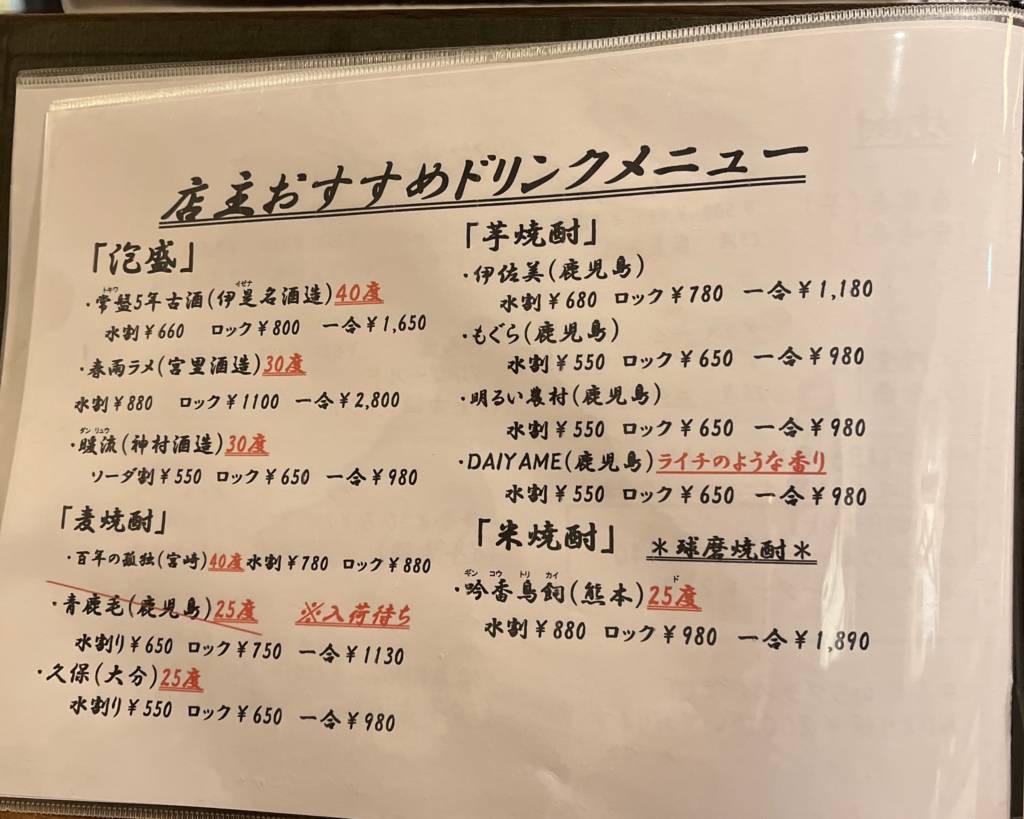 店主おすすめドリンクメニュー
「泡盛」
トキワ イゼナ
・常盤5年古酒(伊是名酒造)40度
水割¥660 ロック¥800 一合¥1,650
・春雨ラメ(宮里酒造)30度
水割¥880 ロック¥1100 一合¥2,800
ダン リュウ
・暖流(神村酒造)30度
ソーダ割¥550 ロック¥650 一合¥980
「麦焼酎」
・百年の孤独(宮崎)40度水割¥780 ロック¥880
・青鹿毛(鹿児島)25度 ※入荷待ち
水割り¥650 ロック¥750 一合¥1130
・久保(大分)25度
水割り¥550 ロック¥650 一合¥980
「芋焼酎」
・伊佐美(鹿児島)
水割¥680 ロック¥780 一合¥1,180
・もぐら(鹿児島)
水割¥550 ロック¥650 一合¥980
・明るい農村(鹿児島)
水割¥550 ロック¥650 一合¥980
・DAIYAME(鹿児島)ライチのような香り
水割¥550 ロック¥650 一合¥980
「米焼酎」 *球磨焼酎*
ギン コウ トリ カイ ド
・吟香鳥飼(熊本)25度
水割¥880 ロック¥980 一合¥1,890